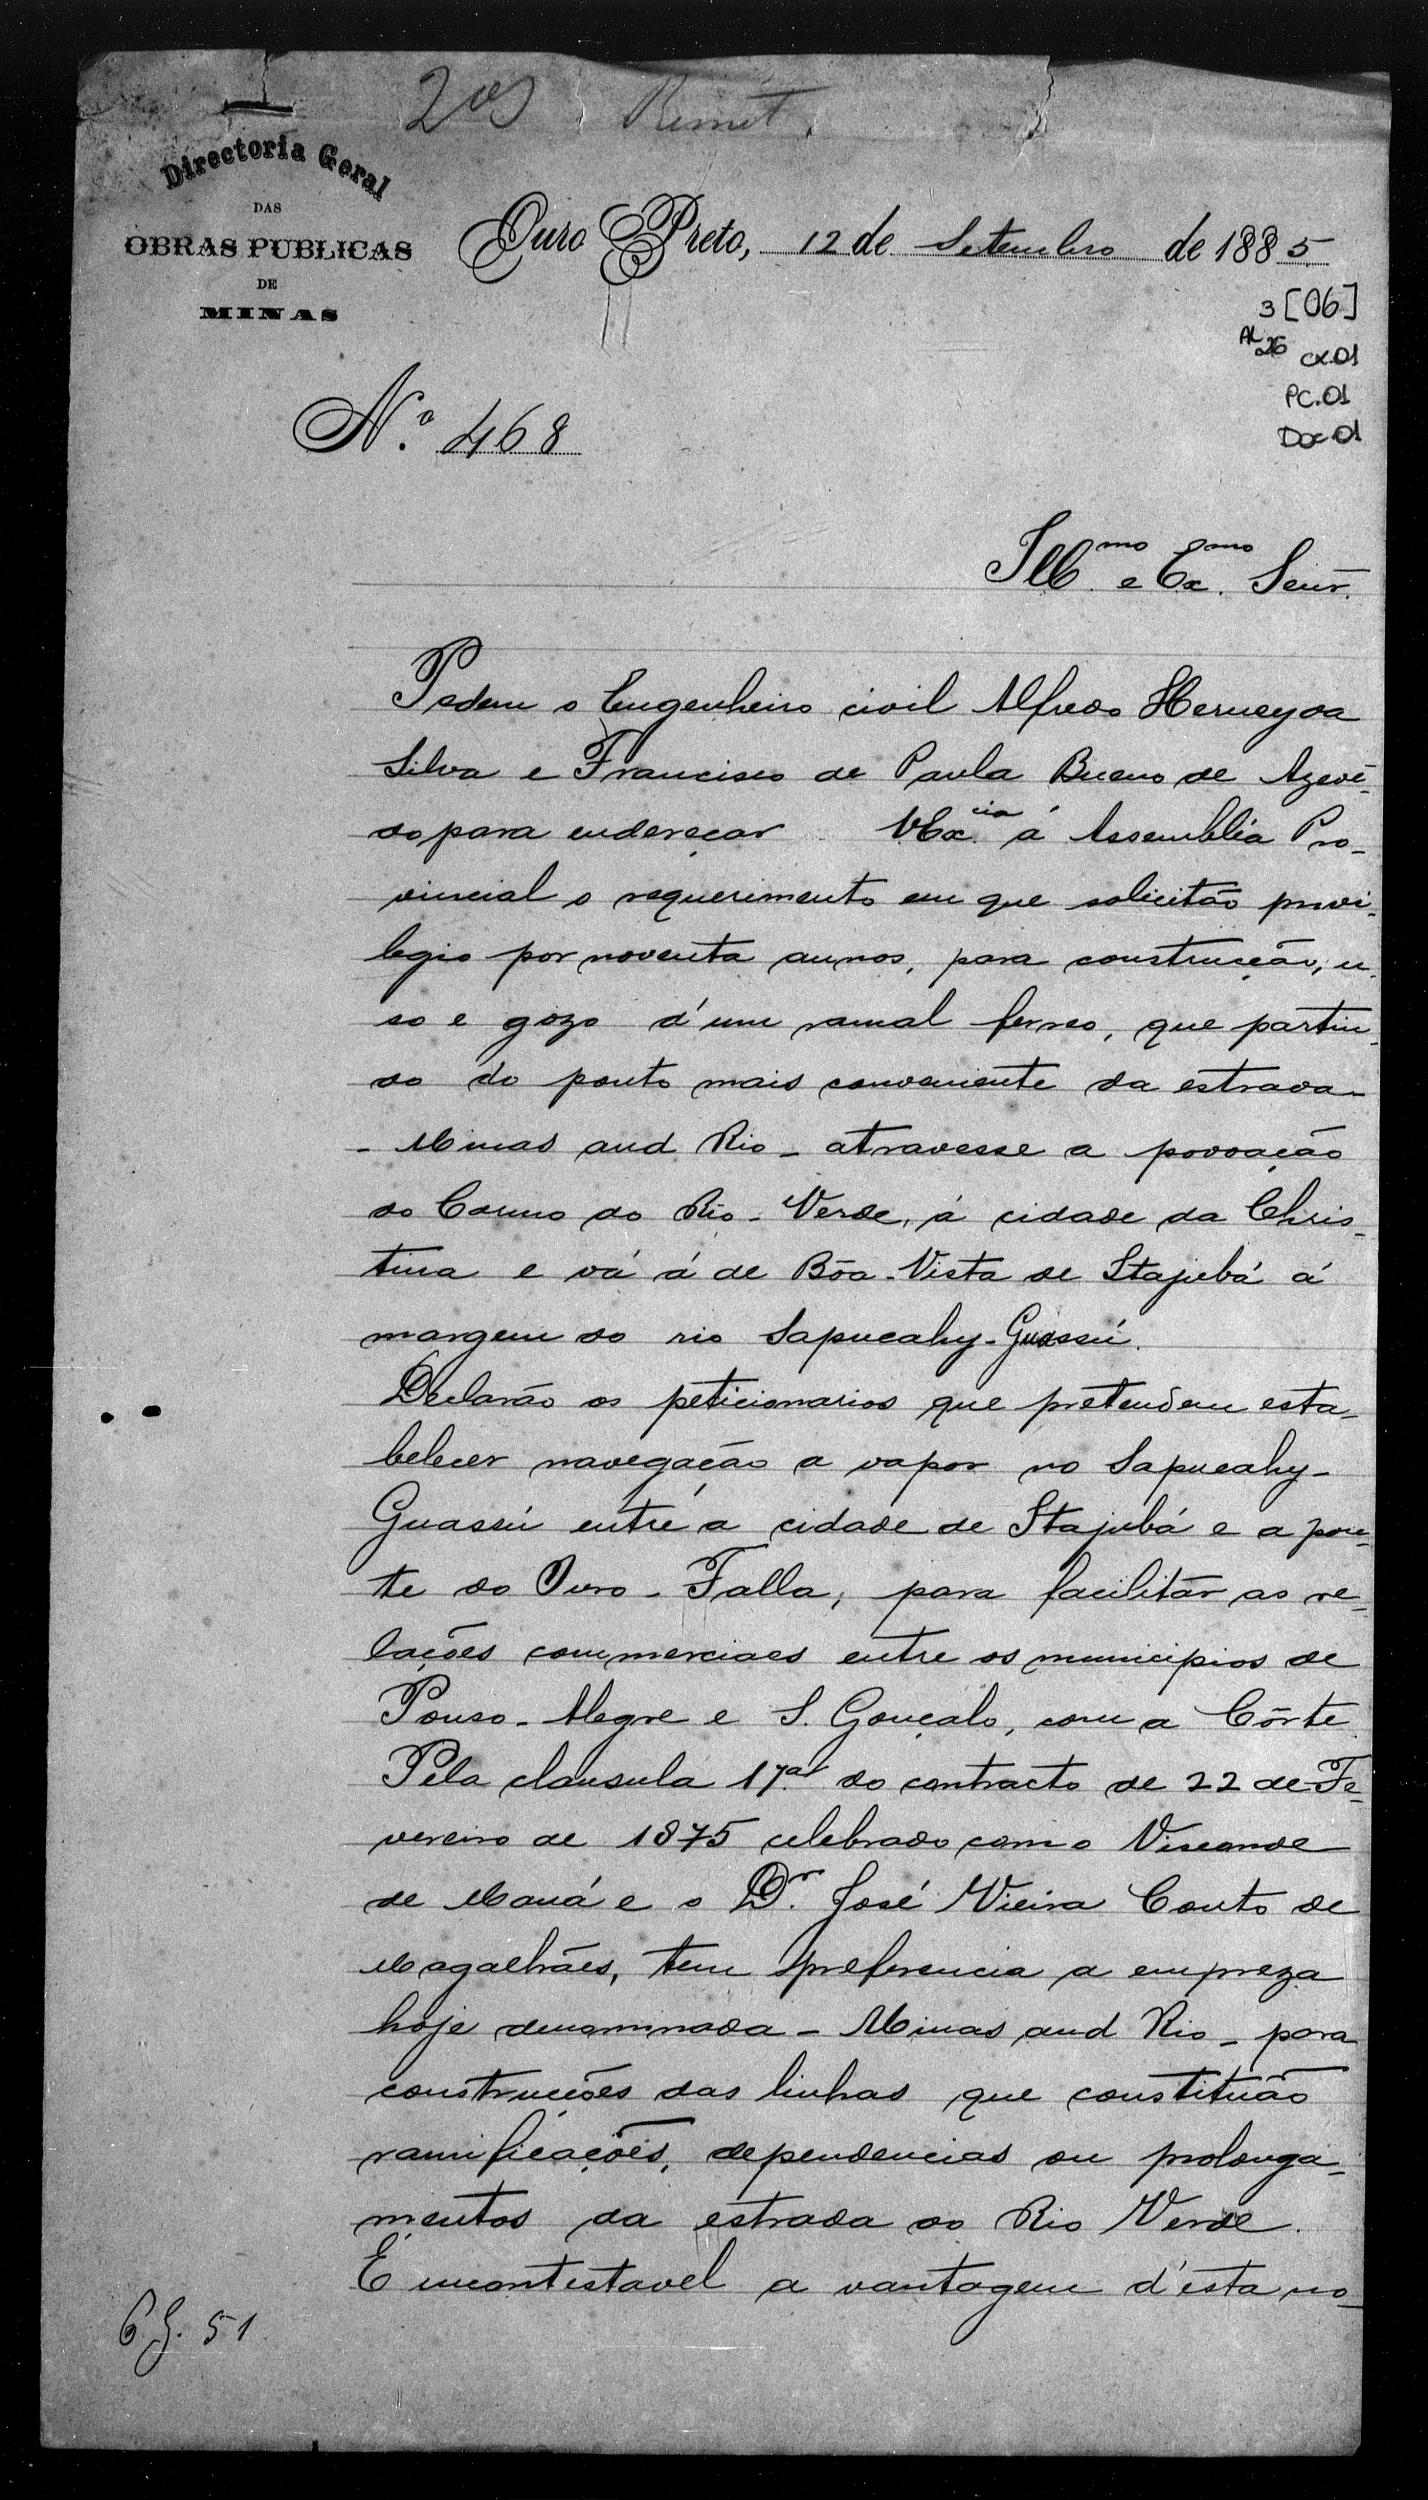 209 Remet.
Directoria Geral
DAS
OBRAS PUBLICAS
DE
MINAS
Ouro Preto, 12 de Setembro de 1885
3 [06]
AL 26 CX.01
PC.01
Doc 01
N.º 468
Ill.mo e Ex.mo Senr.
Pedem o Engenheiro civil Alfredo Herney da
Silva e Francisco de Paula Bueno de Azevê-
do para endereçar VEx.cia á Assembléa Pro-
vincial o requerimento em que solicitão privi-
legio por noventa annos, para construcção, u-
so e gozo d'um ramal ferreo, que partin-
do do ponto mais conveniente da estrada-
- Minas and Rio - atravesse a povoação
do Carmo do Rio-Verde, á cidade da Chris-
tina e vá á de Bôa-Vista de Itajubá á
margem do rio Sapucahy-Guassú.
Declarão os peticionarios que pretendem esta-
belecer navegação a vapor no Sapucahy-
Guassú entre a cidade de Itajubá e a pon-
te do Ouro-Falla, para facilitar as re-
lações commerciaes entre os municipios de
Pouso-Alegre e S. Gonçalo, com a Côrte.
Pela clausula 17ª do contracto de 22 de Fe-
vereiro de 1875 celebrado com o Visconde
de Mauá e o D.r José Vieira Couto de
Magalhães, tem preferencia a empreza
hoje denominada - Minas and Rio - para
construcções das linhas que constituão
ramificações, dependencias ou prolonga-
mentos da estrada do Rio Verde.
É incontestavel a vantagem d'esta no-
51